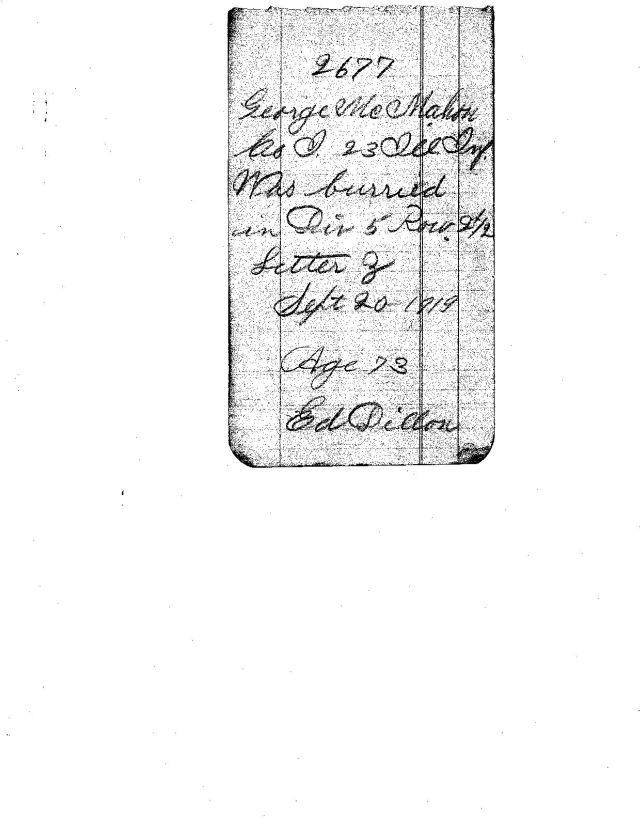 2677
George McMahon
Co I. 23 Ill Inf.
Was burried
in Div 5 Row
Letter
Sept 20 1919
Age 73
Ed Dillon